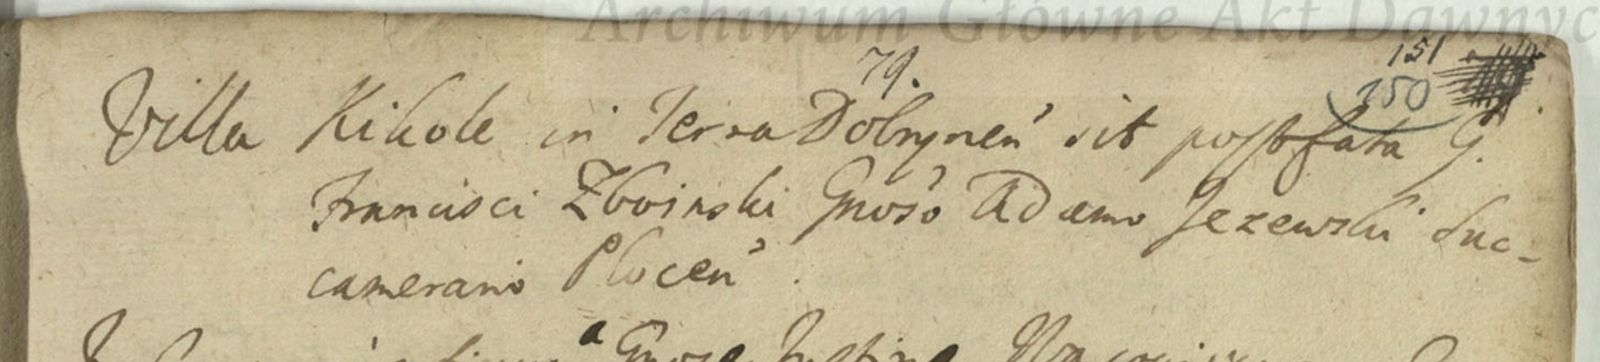 Archiwum Główne Akt Dawnyc
79.
151
150
Villa Kikole in Terra Dobrynen̕ sit post fata G.
Francisci Zboinski Gnoso Adamo Jezewski Suc-
camerario Plocen̕.
a Gnose Justine